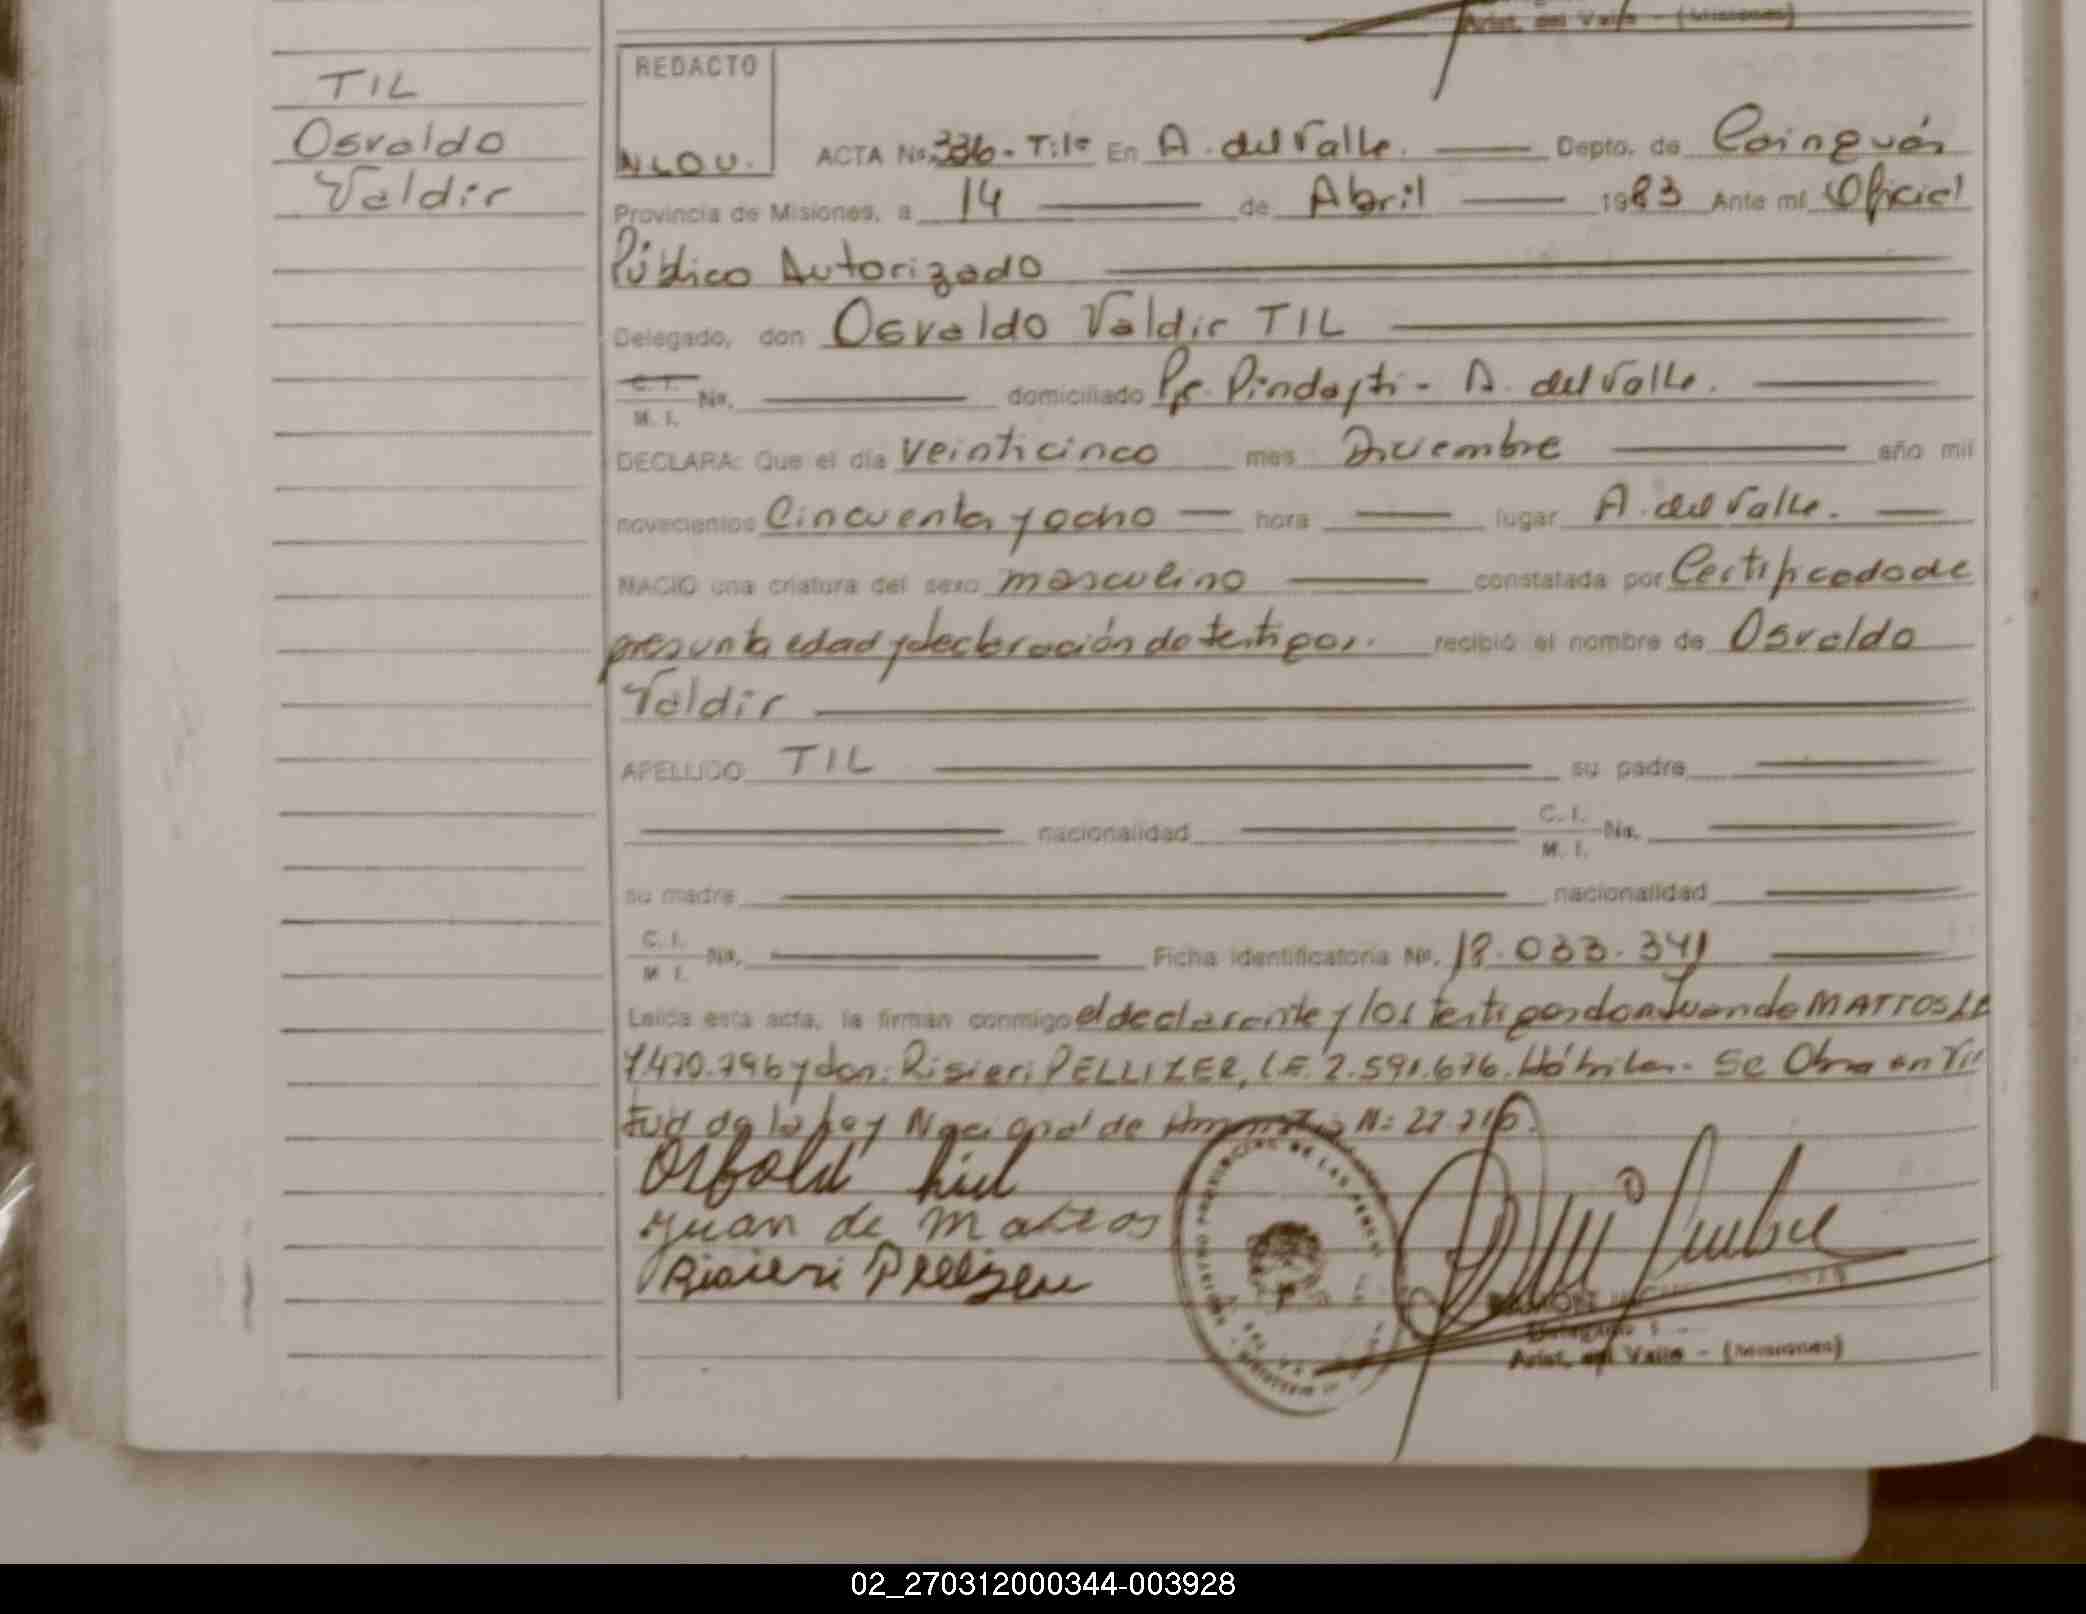 Arist. del Valle - (Misiones)
TIL
Osvaldo
Valdir
REDACTO
N.L.O.V.
ACTA No. 336 - Tº1º En A. del Valle. Depto. de Cainguás
Provincia de Misiones, a 14 de Abril 1983 Ante mí Oficial
Público Autorizado
Delegado, don Osvaldo Valdir TIL
C. I.
M. I. No. domiciliado Pje. Pindayti - A. del Valle.
DECLARA: Que el día veinticinco mes Diciembre año mil
novecientos Cincuenta y ocho hora lugar A. del Valle.
NACIO una criatura del sexo masculino constatada por Certificado de
presunta edad y declaración de testigos. recibió el nombre de Osvaldo
Valdir
APELLIDO TIL su padre
nacionalidad C. I.
M. I. No.
su madre nacionalidad
C. I.
M. I. No. Ficha identificatoria No. 18.033.341
Leída esta acta, la firman conmigo el declarante y los testigos don Juan de MATTOS LE
7.470.796 y don: Risieri PELLIZER, L.E. 7.591.676. Hábiles. Se Obra en Vir
tud de la Ley Nacional de Amnistía N: 22.
Osbald
Juan de Mattos
Risieri Pellizer
REGISTRO PROVINCIAL DE LAS PERSONAS
Delegado
Arist. del Valle - (Misiones)
02_270312000344-003928